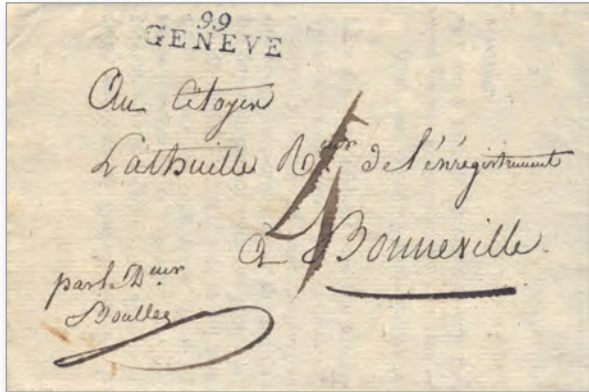 99
GENEVE
Au Citoyen
Lathuille R.eur de l'énregistrement
4
a Bonneville.
par le D.eur